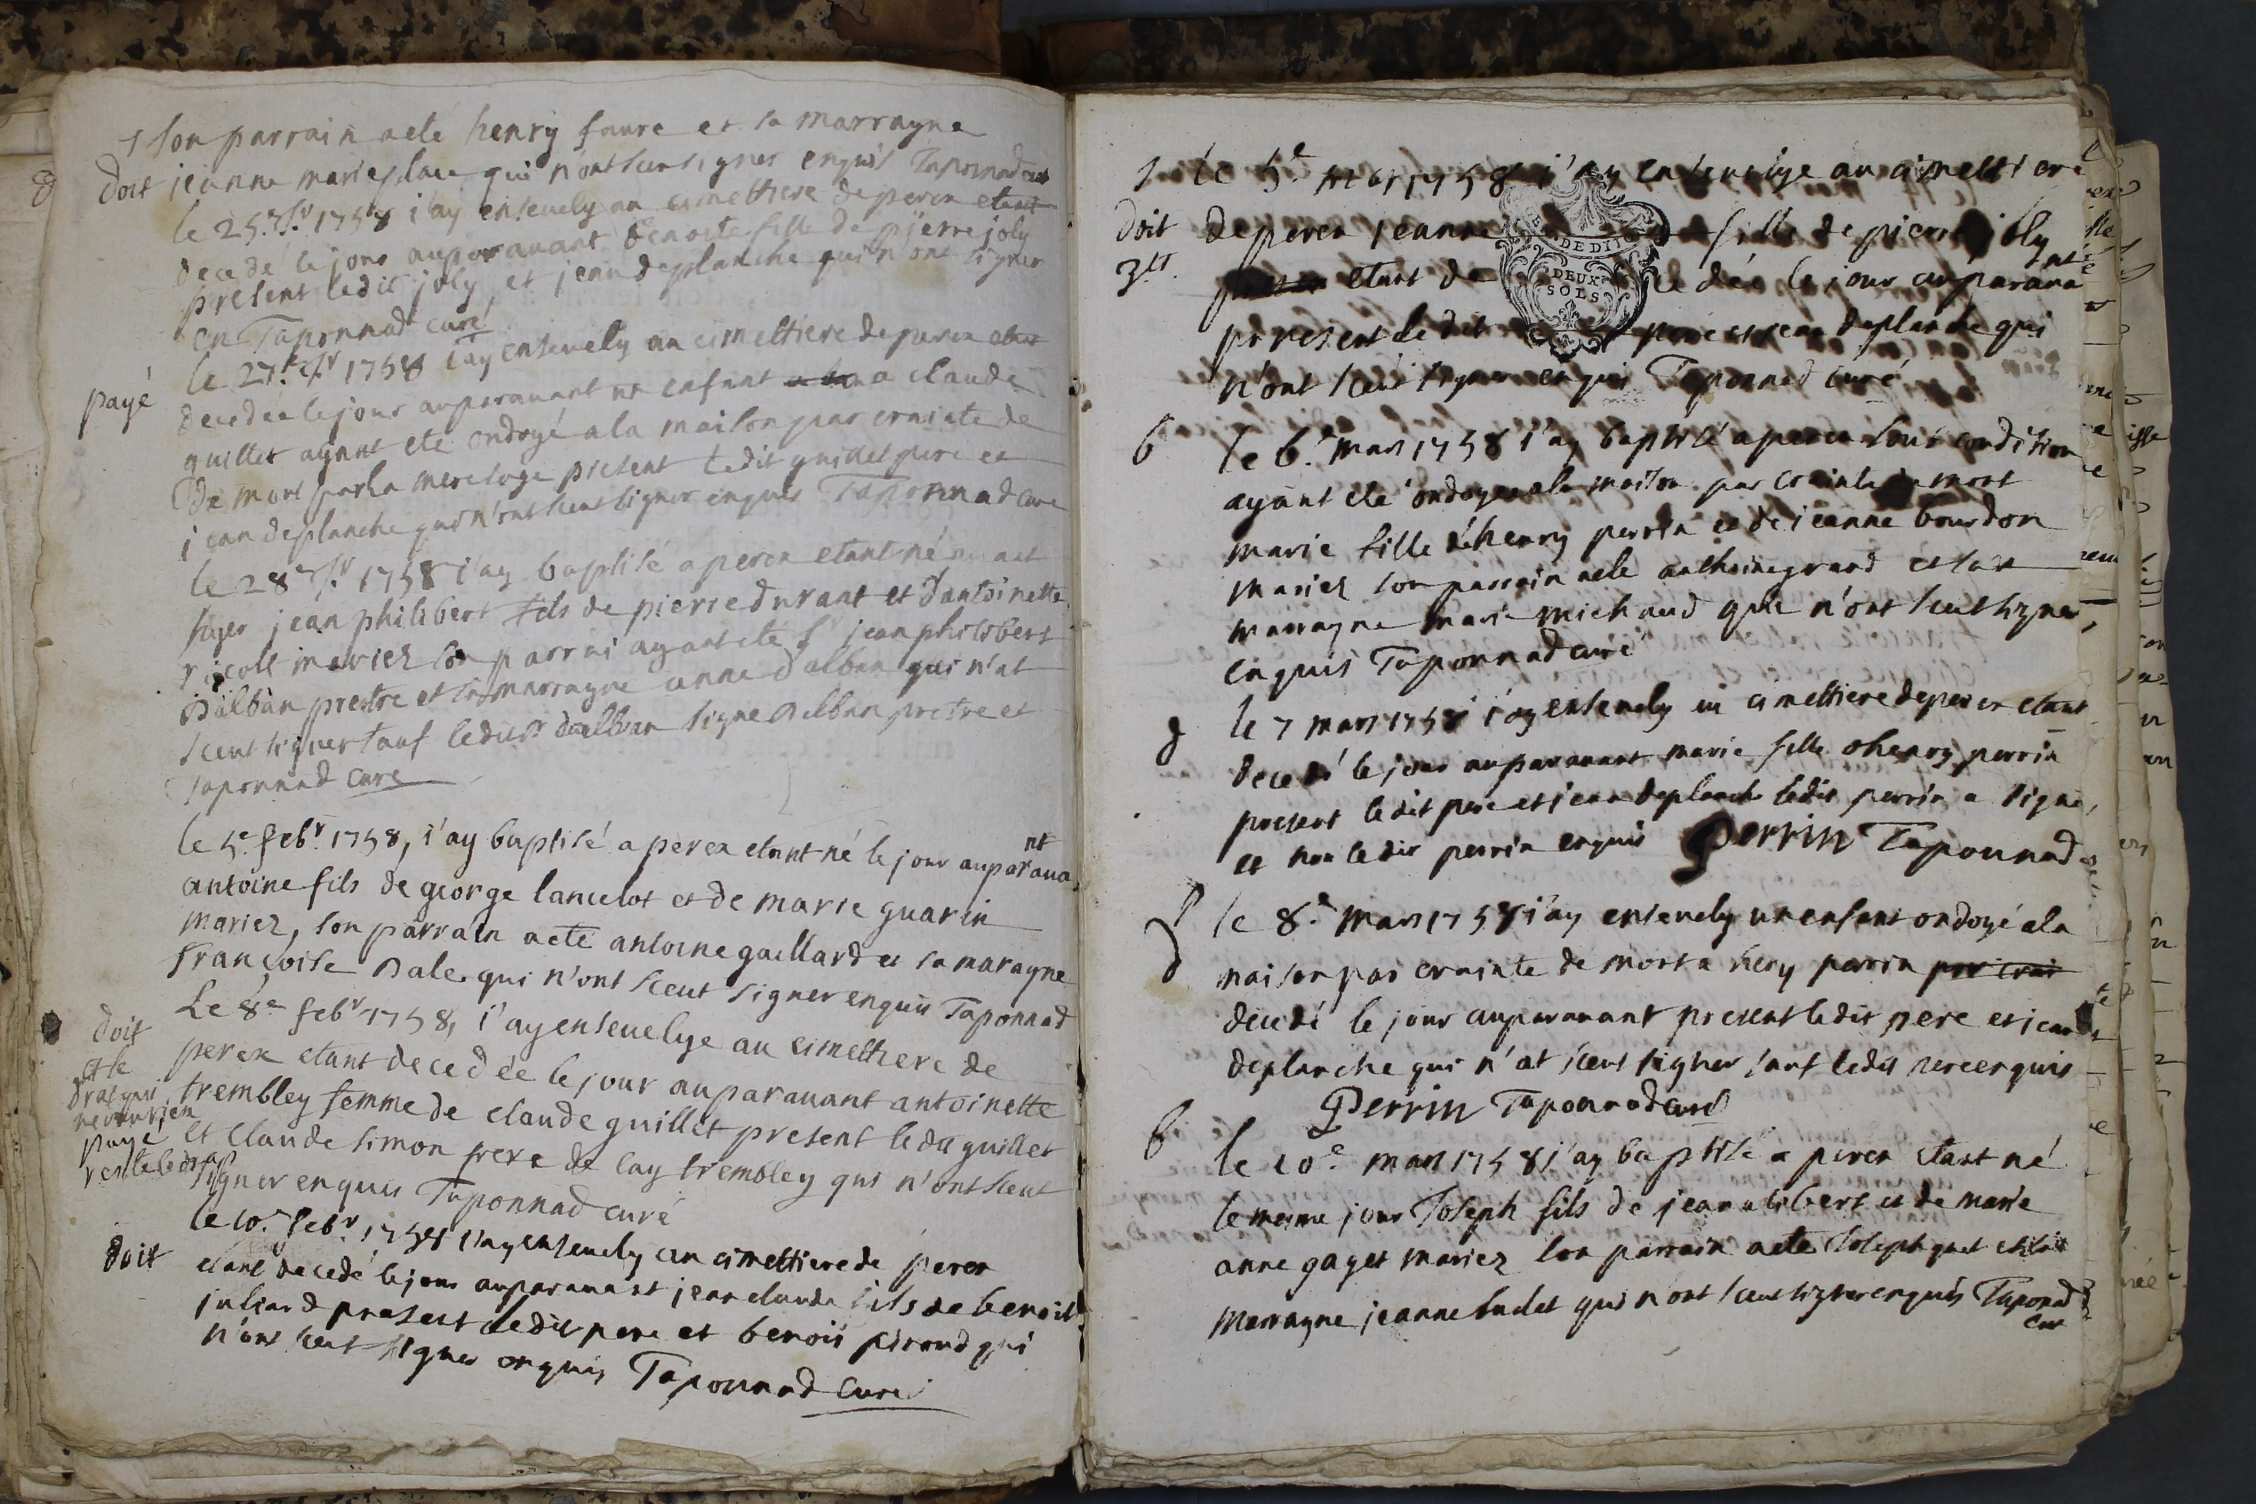 son parrain a ete henry faure et sa marrayne
doit jeanne marie place qui n'ont sceu signer enquis Taponnad curé
le 25e jr 1758 i'ay enseuely au cimettiere de perex etant
decedé le jour auparauant benoite fille de pierre joly
present ledit joly et jean deplanche qui n'ont signer
en Taponnad curé
le 27e jr 1758 i'ay enseuely au cimettiere de perex etant
payé decedée le jour auparauant un enfant a claude
guillet ayant eté ondoyé a la maison par crainte de
de mort par la mere sage present ledit guillet pere et
jean deplanche qui n'ont sceut signer enquis Taponnad curé
le 28e jr 1758 i'ay baptisé a perex etant né
jean philibert fils de pierre durant et d'antoinette
mariez son parrai ayant eté sr jean philibert
Dalban prestre et sa marrayne anne dalban qui n'at
sceut signer sauf ledit sr dalban signe Dalban prestre et
Taponnad curé
nt
le 5e febr 1758, i'ay baptisé a perex etant né le jour auparaua
antoine fils de george lancelot et de marie guarin
mariez, son parrain a eté antoine gaillard et sa marayne
françoise Dale qui n'ont sceut signer enquis Taponnad
Le 8e febr 1758, i'ay enseuelye au cimettiere de
doit perex etant decedée le jour auparauant antoinette
et le
drasqui trembley femme de claude guillet present ledit guillet
payé et Claude simon frere de lay trembley qui n'ont sceut
reste le dra signer enquis Taponnad curé
le 10e febr 1758 i'ay enseuely au cimettiere de perex
doit etant decedé le jour auparauant jean claude fils de benoit
juliard present ledit pere et benoit piroud qui
n'ont sceut signer enquis Taponnad curé
S le 5e 1758 i'ay enseuelye au cimettiere
doit de perex jeanne fille de pierre joly
nt
3tt etant de ce dée le jour auparaua
present ledit pere et jean deplanche qui
n'ont sceut signer enquis Taponnad curé
b le 6e mars 1758 i'ay baptisé a perex sous condition
ayant eté ondoyee a la maison par crainte de mort
marie fille d'henry perrin et de jeanne bourdon
mariez son parrain a ete anthoine grand et sa
marrayne marie michaud qui n'ont sceut signer,
enquis Taponnad curé
le 7 mars 1758 i'ay enseuely au cimettiere de perex etant
decedé le jour auparauant marie fille d henry perrin
present ledit pere et jean deplanche ledit perrin a signé,
et non ledit perrin enquis Perrin Taponnad
le 8e mars 1758 i'ay enseuely un enfant ondoyé a la
d maison par crainte de mort a hery perrin par crai
decedé le jour auparauant present ledit pere et jean
deplanche qui n'at sceut signer sauf ledit pere enquis
Perrin Taponnad curé
b le 10e mars 1758 i'ay baptisé a perex etant né
le meme jour Joseph fils de jean alibert et de marie
anne gayet mariez son parrain a eté Joseph et sa
marrayne jeanne qui n'ont sceut signer enquis Taponad
cur
DEUX
SOLS